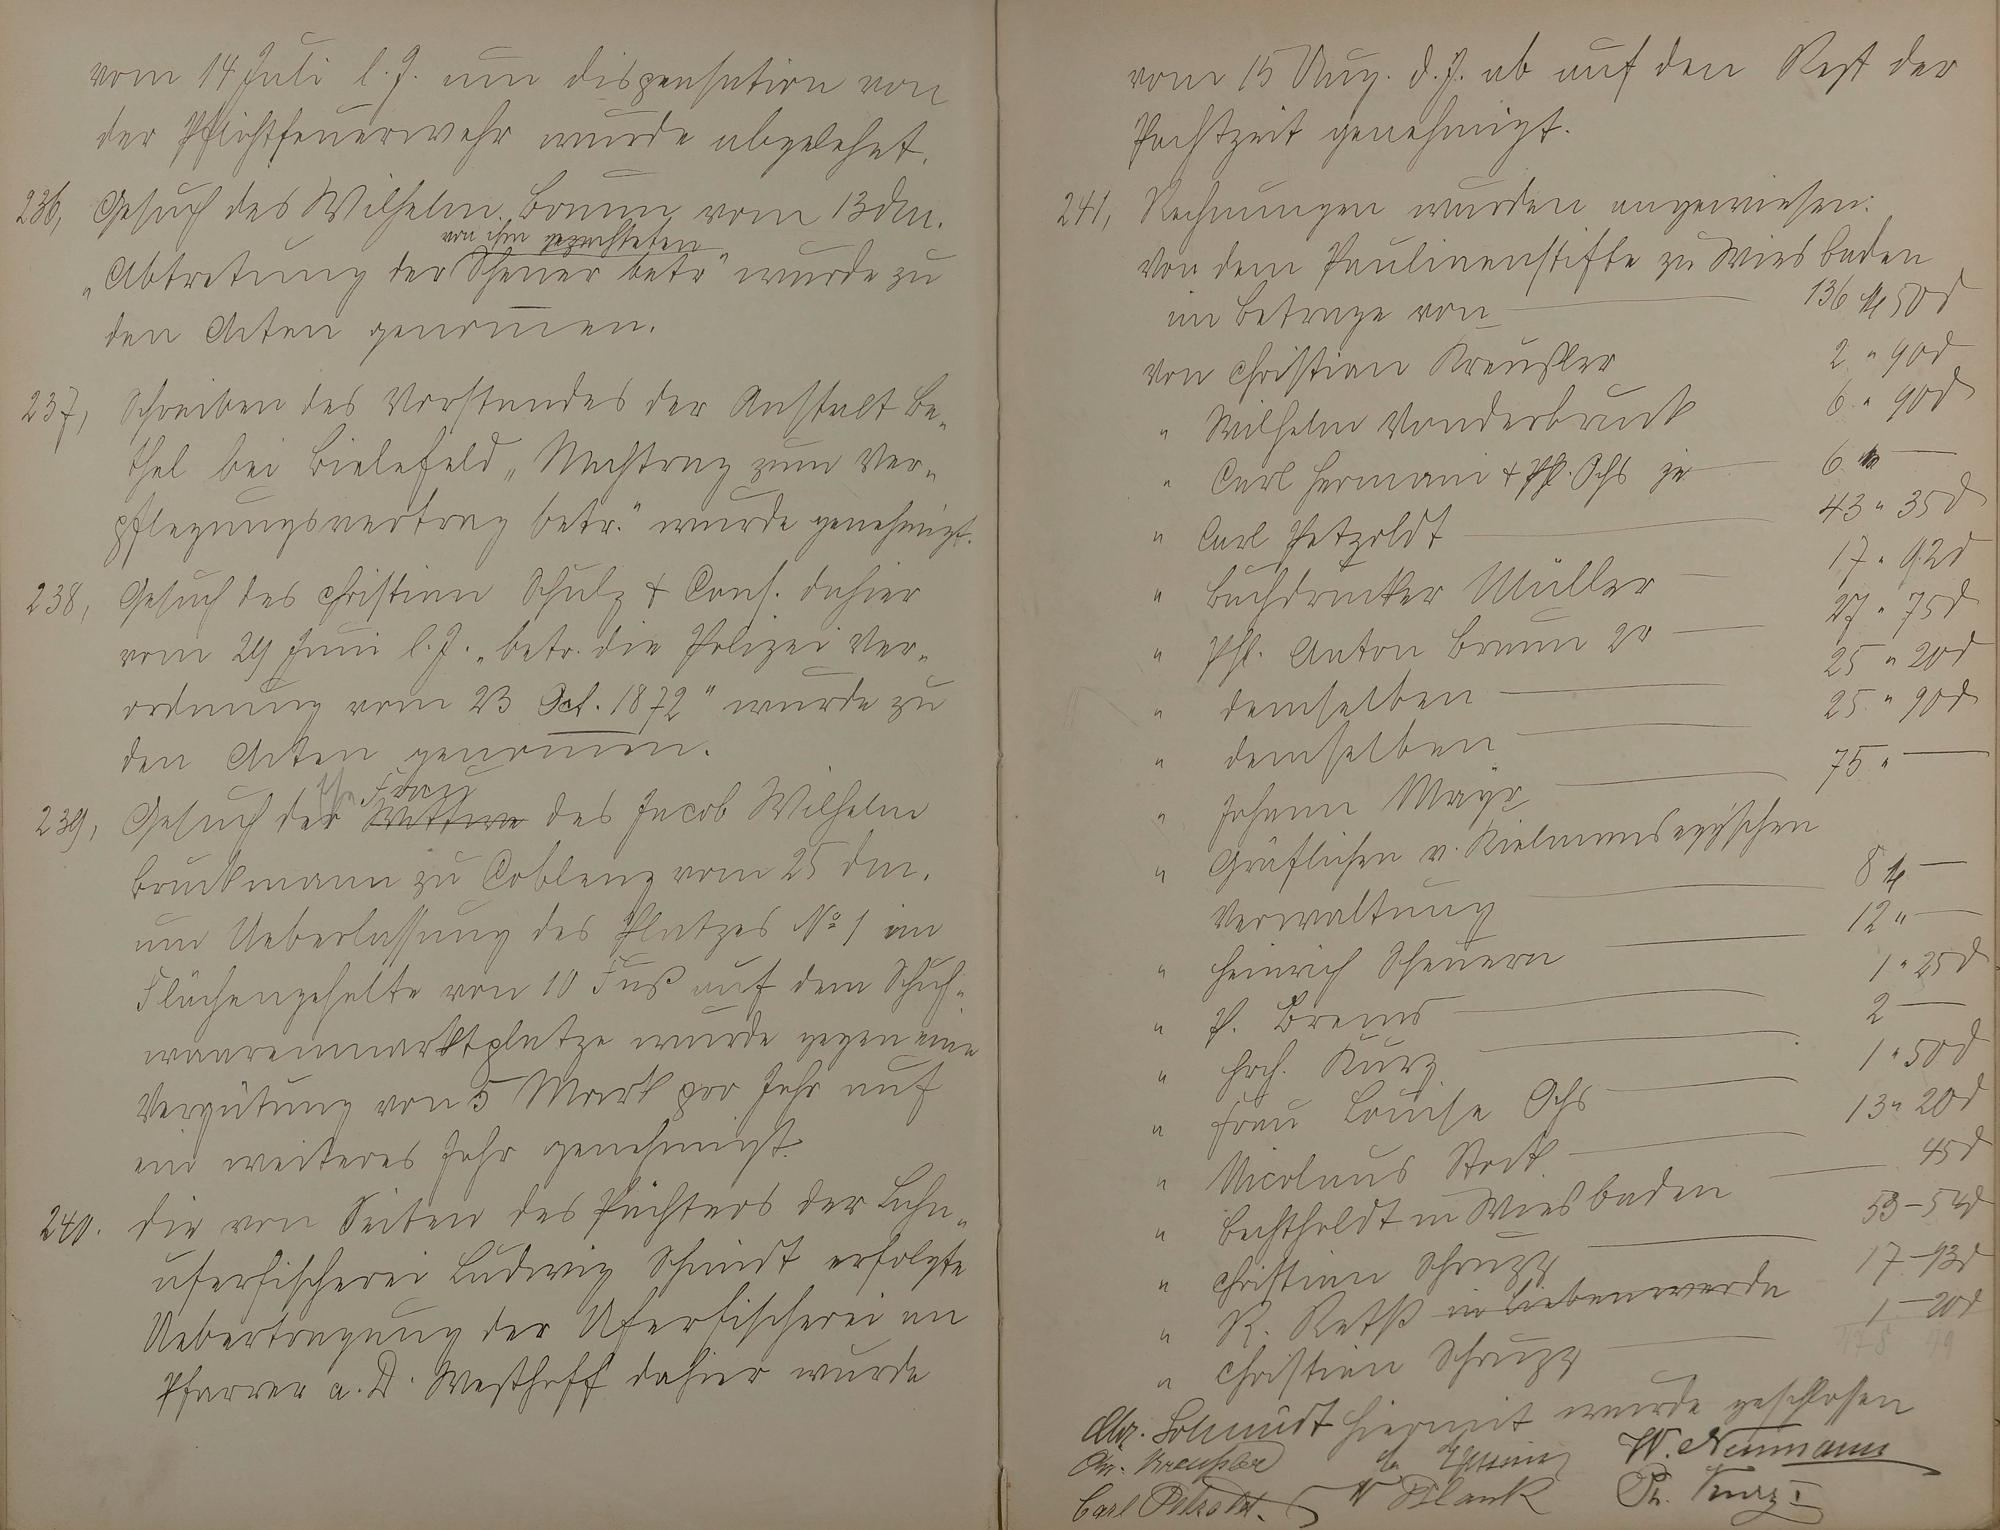 vom 14 Juli l. J. um dispensation von
der Pflichtfeuerwehr wurde abgelehnt.
236, Gesuch des Wilhelm Braun vom 13 dm.
von ihm gepachteten
„Abtretung der Scheuer betr" wurde zu
den Acten genom̅en.
237, Schreiben des Vorstandes der Anstalt Be-
thel bei Bielefeld „Nachtrag zum Ver-
pflegungsvertrag betr." wurde genehmigt.
238, Gesuch des Christian Schulz & Cons. dahier
vom 29 Juni l. J. „betr. die Polizei Ver-
ordnung vom 23 Oct. 1872" wurde zu
den Acten genom̅en.
Frau
239, Gesuch der Wittwe des Jacob Wilhelm
Bruckmann zu Coblenz vom 25 dm.
um Ueberlassung des Platzes No 1 im
Flächengehalte von 10 Fuß auf dem Schuh-
waarenmarktplatze wurde gegen eine
Vergütung von 5 Mark pro Jahr auf
ein weiteres Jahr genehmigt.
240. die von Seiten des Pächters der Lahn-
uferfischerei Ludwig Schmidt erfolgte
Uebertragung der Uferfischerei an
Pfarrer a. D. Westhoff dahier wurde
vom 15 Aug. d. J. ab auf den Rest der
Pachtzeit genehmigt.
241, Rechnungen wurden angewiesen:
von dem Paulinenstifte zu Wiesbaden
im Betrage von — 136 M 50 d
von Christian Kreußler 2 " 90 d
" Wilhelm Vonderbruck 6 " 90 d
" Carl Hermani & Ph. Ochs je — 6 M —
" Carl Petzoldt — 43 " 35 d
" Buchdrucker Müller — 17 " 92 d
" Phl. Anton Braun 2r — 27 " 75 d
" demselben — 25 " 20 d
" demselben — 25 " 90 d
" Johann Mayr — 75 " —
" Gräflichen v. Kielmannseggschen
Verwaltung — 8 M —
" Heinrich Scheuern — 12 " —
" P. Brems — 1 " 25 d
" Hch. Kurz — 2 —
" Frau Louise Ochs — 1 " 50 d
" Nicolaus Stock — 13 " 20 d
" Bechtholdt in Wiesbaden — 45 d
" Christian Schrupp — 53 – 54 d
" R. Retß in Liebenwerda 17 – 93 d
" Christian Schrupp — 1 – 20 d
hiermit wurde geschlossen
Chr. Schmidt
Chr. Kreußler W. Neumann
Carl Petzoldt. W Blank Ph. Kurz I